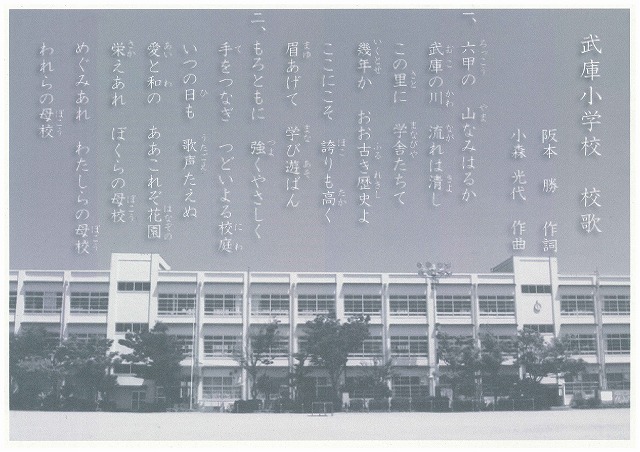 武庫小学校 校歌
阪本 勝 作詞
小森 光代 作曲
一、六甲の 山なみはるか
武庫の川 流れは清し
この里に 学舎たちて
幾年か おお古き歴史よ
ここにこそ 誇りも高く
眉あげて 学び遊ばん
二、もろともに 強くやさしく
手をつなぎ つどいよる校庭
いつの日も 歌声たえぬ
愛と和の ああこれぞ花園
栄えあれ ぼくらの母校
めぐみあれ わたしらの母校
われらの母校